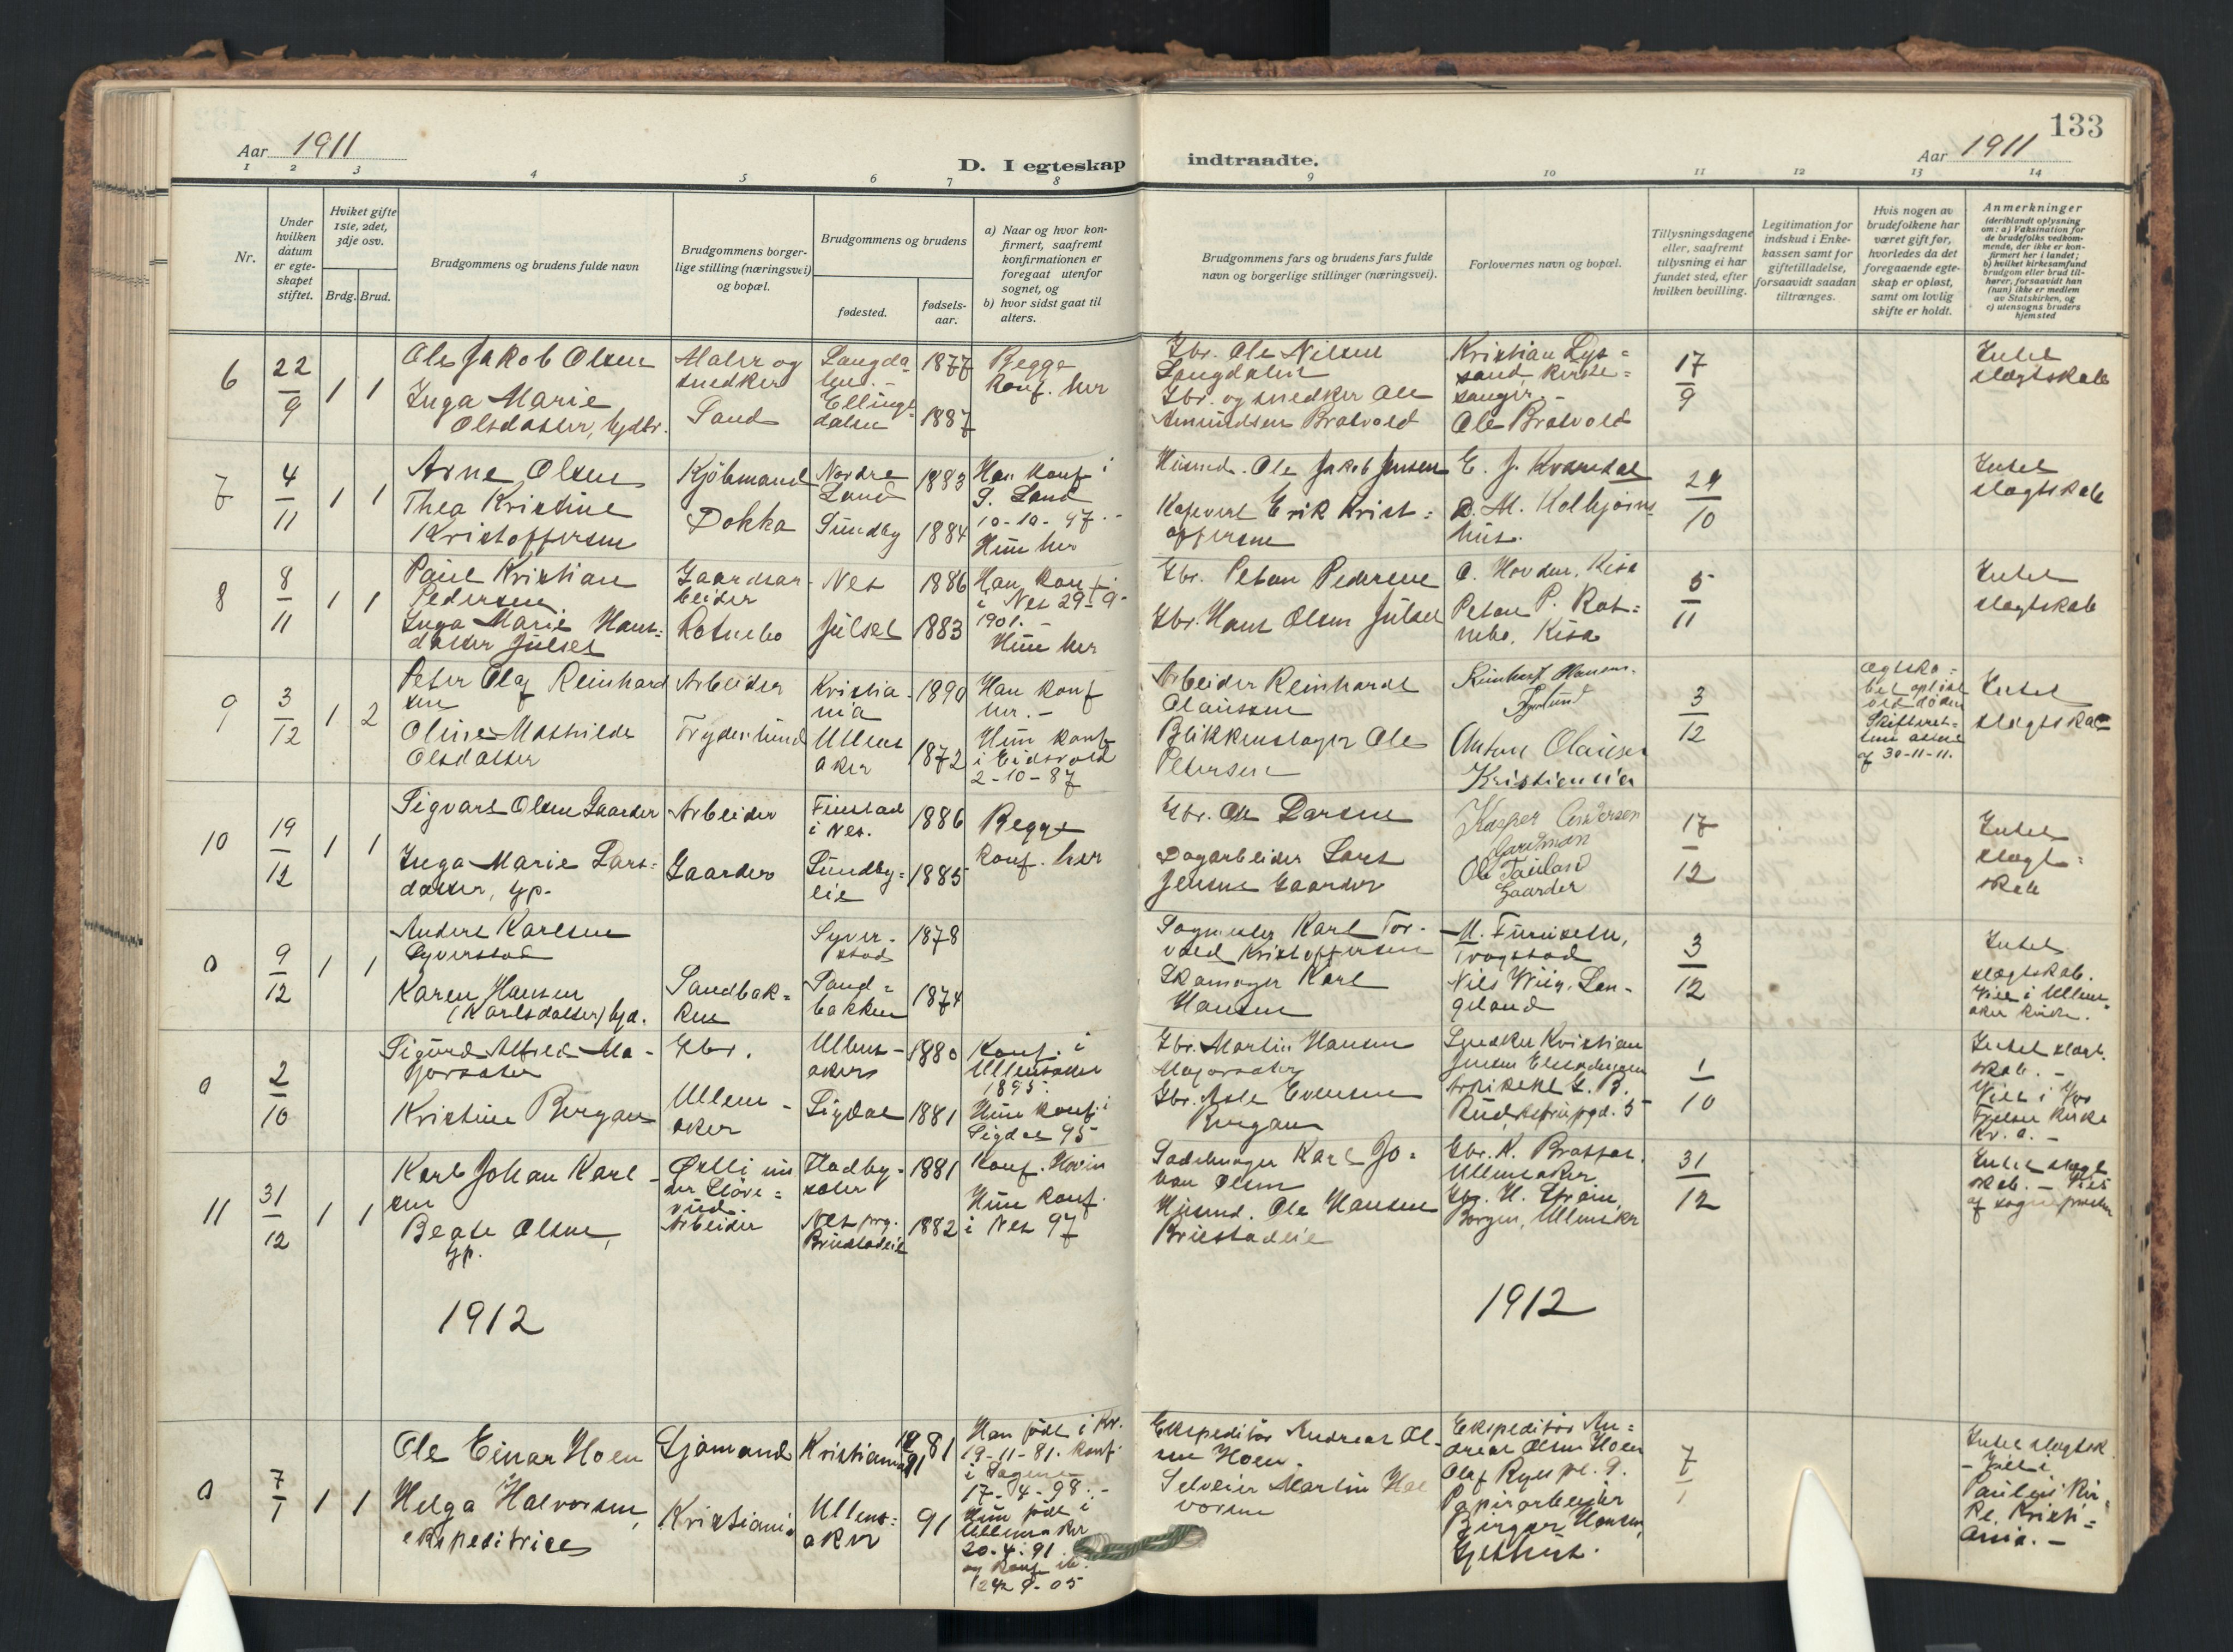 133
Aar 1911
D. I egteskap indtraadte.
Aar 1911
1 2 3 4 5 6 7 8 9 10 11 12 13 14
Nr.
Under
hvilken
datum
er egte-
skapet
stiftet.
Hviket gifte
1ste, 2det,
3dje osv.
Brdg.
Brud.
Brudgommens og brudens fulde navn
Brudgommens borger-
lige stilling (næringsvei)
og bopæl.
Brudgommens og brudens
fødested.
fødsels-
aar.
a) Naar og hvor kon-
firmert, saafremt
konfirmationen er
foregaat utenfor
sognet, og
b) hvor sidst gaat til
alters.
Brudgommens fars og brudens fars fulde
navn og borgerlige stillinger (næringsvei).
Forlovernes navn og bopæl.
Tillysningsdagene
eller, saafremt
tillysning ei har
fundet sted, efter
hvilken bevilling.
Legitimation for
indskud i Enke-
kassen samt for
giftetilladelse,
forsaavidt saadan
tiltrænges.
Hvis nogen av
brudefolkene har
været gift før,
hvorledes da det
foregaaende egte-
skap er opløst,
samt om lovlig
skifte er holdt.
Anmerkninger
(deriblandt oplysning
om: a) Vaksination for
de brudefolks vedkom-
mende, der ikke er kon-
firmert her i landet;
b) hvilket kirkesamfund
brudgom eller brud til-
hører, forsaavidt han
(hun) ikke er medlem
av Statskirken, og
c) utensogns bruders
hjemsted
6
22
9
1 1
Ole Jakob Olsen
Inga Marie
Olsdatter,
Maler og
snedker
Sand
Langda
len. -
Ellings
dalen
1877
1887
Begge
konf. her
Gbr. Ole Nilsen
Langdalen
Gbr. og snedker Ole
Amundsen Bratvold
Kristian Lys=
sand, kirke=
sanger. -
Ole Bratvold
17
9
Intet
slægtskab
7
4
11
1 1
Arne Olsen
Thea Kristine
Kristoffersen
Kjöbmand
Dokka
Nordre
Land
Sundby
1883
1884
Han konf i
S. Land
10-10-97. -
Hun her
Husmd. Ole Jakob Jensen
Erik Krist=
offersen
E. J. Kværndal
D. M. Kolbjørns
hus.
29
10
Intet
slægtskab
8
8
11
1 1
Paul Kristian
Pedersen
Inga Marie Hans=
datter Julset
Gaardsar-
beider
Rotnebo
Nes
Julset
1886
1883
Han konf.
i Nes 29-9-
1901. -
Hun her
Gbr. Petan Pedersen
Gbr. Hans Olsen Julset
O. Hovden, Kisa
Petan P. Rot=
nebo, Kisa
5
11
Intet
slægtskab
9
3
12
1 2
Peter Olaf Reinhard
sen
Oline Mathilde
Olsdatter
Arbeider
Trydenlund
Kristia-
nia
Ullens
aker
1890
1872
Han konf
her. -
Hun konf
i Eidsvold
2-10-87
Arbeider Reinhardt
Olaussen
Blikkenslager Ole
Petersen
Reinhart Hansen.
Anton Olausen
Kristiania
3
12
Ægteska=
bet opløst
ved døden
Skifteret=
tens attest
af 30-11-11.
Intet
slægtskab
10
19
12
1 1
Sigvart Olsen Gaarder
Inga Marie Lars=
datter, Gp.
Arbeider
Gaarder
Finstad
i Nes.
Sundby=
eie
1886
1885
Begge
konf. her
Gbr. Ole Larsen
Dagarbeider Lars
Jensen Gaarder
Kasper Andersen
Gardman
Ole
Gaarder
17
12
Intet
slægt=
skab
0
9
12
1 1
Anders Karlsen
Syverstad
Karen Hansen
(Karlsdatter)
Sandbak=
ken
Syver-
stad
Sand=
bakken
1878
1874
Karl Tor-
vald Kristoffersen
Skomager Karl
Hansen
M. Furuseth,
Trøgstad
Nils Wiig, Lan-
geland
3
12
Intet
slægtskab.
Viet i Ullens
aker kirke.
0
2
10
Sigurd Alfred Ma-
jorsæter
Kristine Bergan
Gbr.
Ullens-
aker
Ullens-
aker
Sigdal
1880
1881
Konf. i
Ullensaker
1895.
Hun konf i
Sigdal 95
Gbr. Martin Hansen
Majorsæter
Gbr. Asle Evensen
Bergan
Snedker Kristian
Jensen
Rud,
1
10
Intet slægt.
skab. -
Viet i Vor
Frelsers kirke
Kr. a. -
11
31
12
1 1
Karl Johan Karl-
sen
Beate Olsen,
Gp.
Arbeider
Fladby-
sæter
Nes prg.
1881
1882
Konf. Hovin
Hun konf.
i Nes 97
Sadelmager Karl Jo=
han Olsen
Husmd. Ole Hansen
Gbr. K.
Ullensaker
Gbr. H.
Borgen, Ullensaker
31
12
Intet slægt
skab. - Viet
af sognepresten
1912
1912
0
7
1
1 1
Ole Einar Hoen
Helga Halvorsen,
ekspeditrice
Sjømand
Kristiania
Kristiania
Ullens=
aker
81
91
91
Han født i Kr.
19-11-81. konf
i Sagene
17-4-98. -
Hun født i
Ullensaker
20-4-91.
og konf
Ekspeditør Andreas Ol-
sen Hoen.
Selveier Martin Hal
vorsen
Ekspeditør An=
dreas Olsen Hoen
Olaf Ryes pl. 9.
Papirarbeider
Birger Hansen,
Gjethus.
7
1
Intet slægtsk.
- Viet i
Paulus kir
ke. Kristi=
ania. -